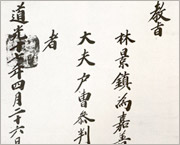 教旨
林景鎮爲嘉善
大夫戶曹參判
者
道光十年四月二十六日